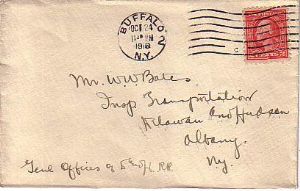 BUFFALO 2
OCT 24
1918
N.Y.
Mr. W.W. Bates
Insp Transportation
Delawar And Hudson
Albany
Ny
Genl Offices of D & H RR